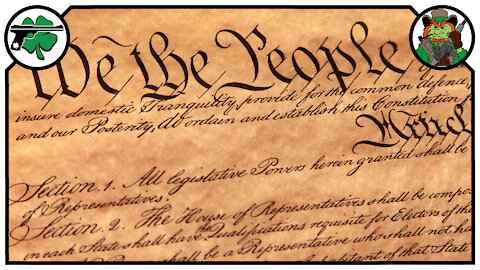 We the People
insure domestic Tranquility, provide for the common defence,
and our Posterity, do ordain and establish this Constitution f
Articl
Section. 1. All legislative Powers herein granted shall be
of Representatives.
Section. 2. The House of Representatives shall be compo
in each State shall have the Qualifications requisite for Electors of the
shall be a Representative who shall not ha
bitant of that State